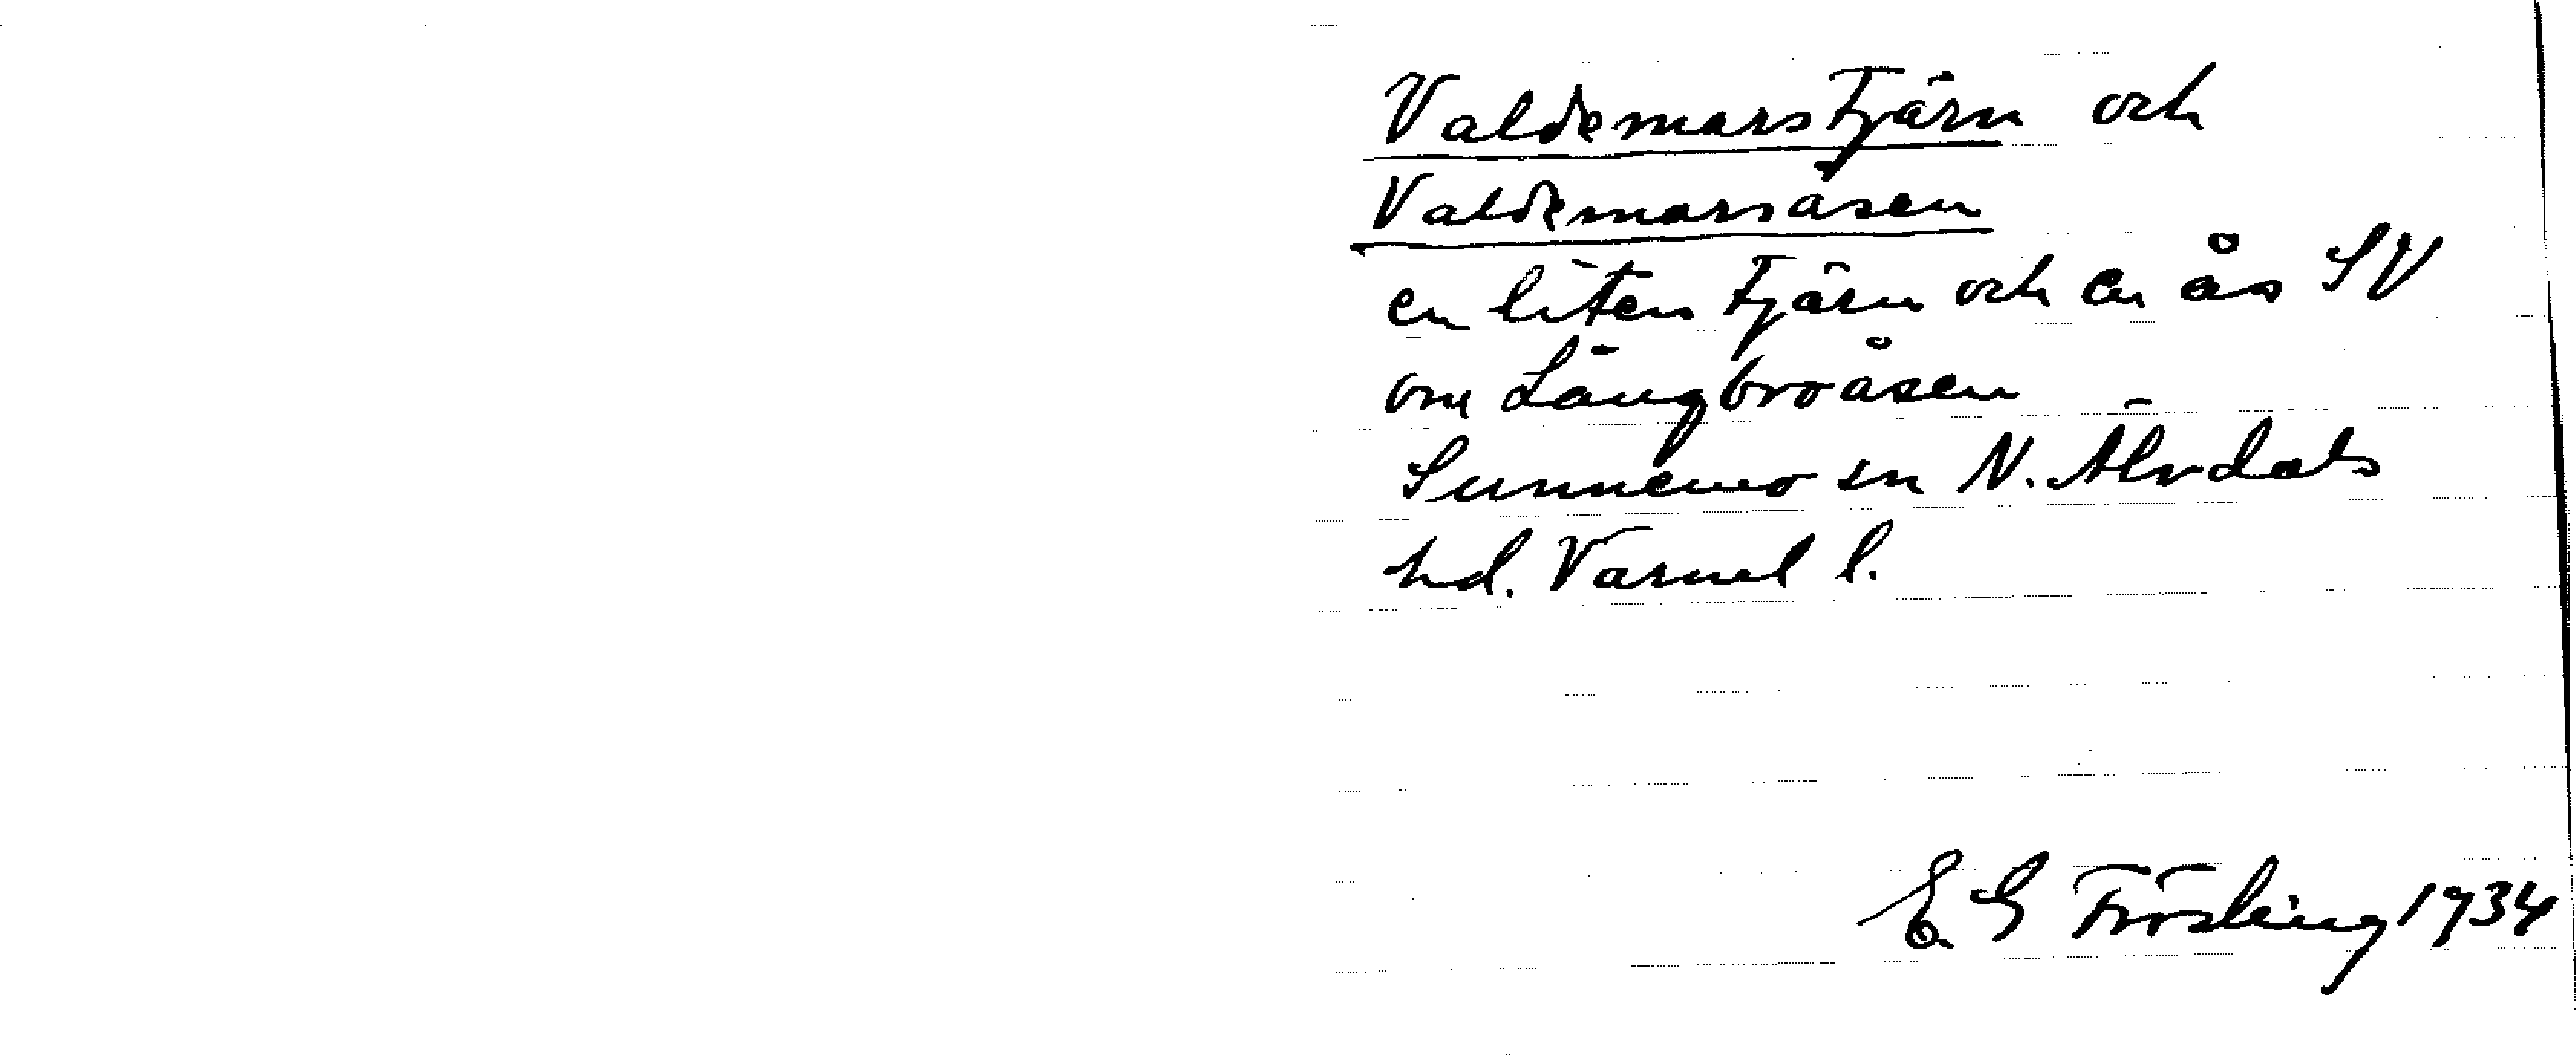 Valdemarstjärn och
Valdemarsåsen
en liten tjärn och en ås SV
om Långbroåsen
Sunnemo sn N. Älvdals
hd. Värml l.
E G Frösling 1934